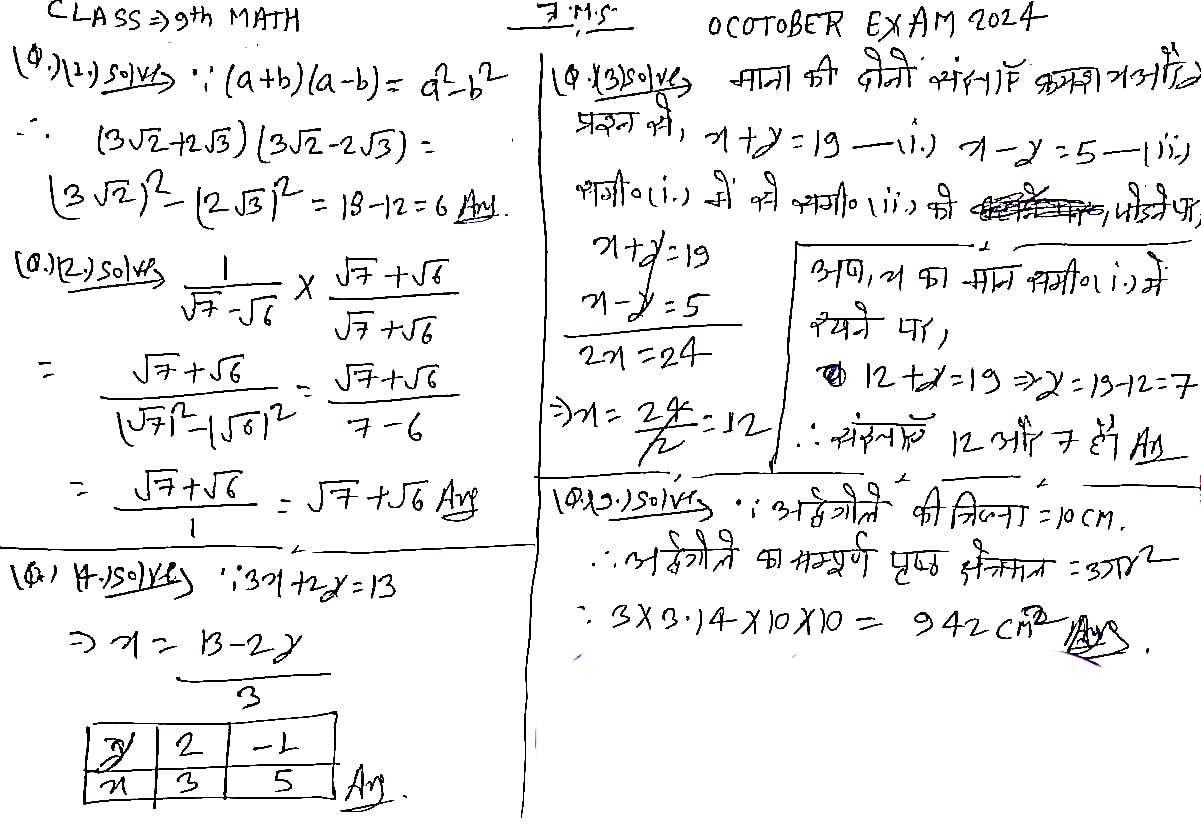 CLASS⇒9th MATH
F.M.S.
OCOTOBER EXAM 2024
(Q.)(1.) Solve ∵ (a+b)(a-b) = a²-b²
∴ (3√2+2√3)(3√2-2√3) =
(3√2)² - (2√3)² = 18-12=6 Ans.
(Q.)(2.) Solve 1/(√7-√6) × (√7+√6)/(√7+√6)
= (√7+√6)/((√7)²-(√6)²) = (√7+√6)/(7-6)
= (√7+√6)/1 = √7+√6 Ans
(Q.) (4.) Solve ∵ 3x+2y=13
⇒ x = (13-2y)/3
y 2 -1
x 3 5 Ans.
(Q.)(3) Solve माना की दोनों संख्याएँ क्रमश x और y हैं
प्रश्न से, x+y=19 —(i.) x-y=5—(ii.)
समी०(i.) में से समी०(ii.) को जोड़ने पर,
x+y=19
x-y=5
2x=24
⇒x= 24/2 =12
अब, x का मान समी०(i.) में
रखने पर,
12+y=19 ⇒ y=19-12=7
∴ संख्याएँ 12 और 7 हैं। Ans
(Q.)(5.) Solve ∵ अर्द्धगोले की त्रिज्या = 10 CM.
∴ अर्द्धगोले का सम्पूर्ण पृष्ठ क्षेत्रफल = 3πr²
∴ 3×3.14×10×10 = 942 cm² Ans.